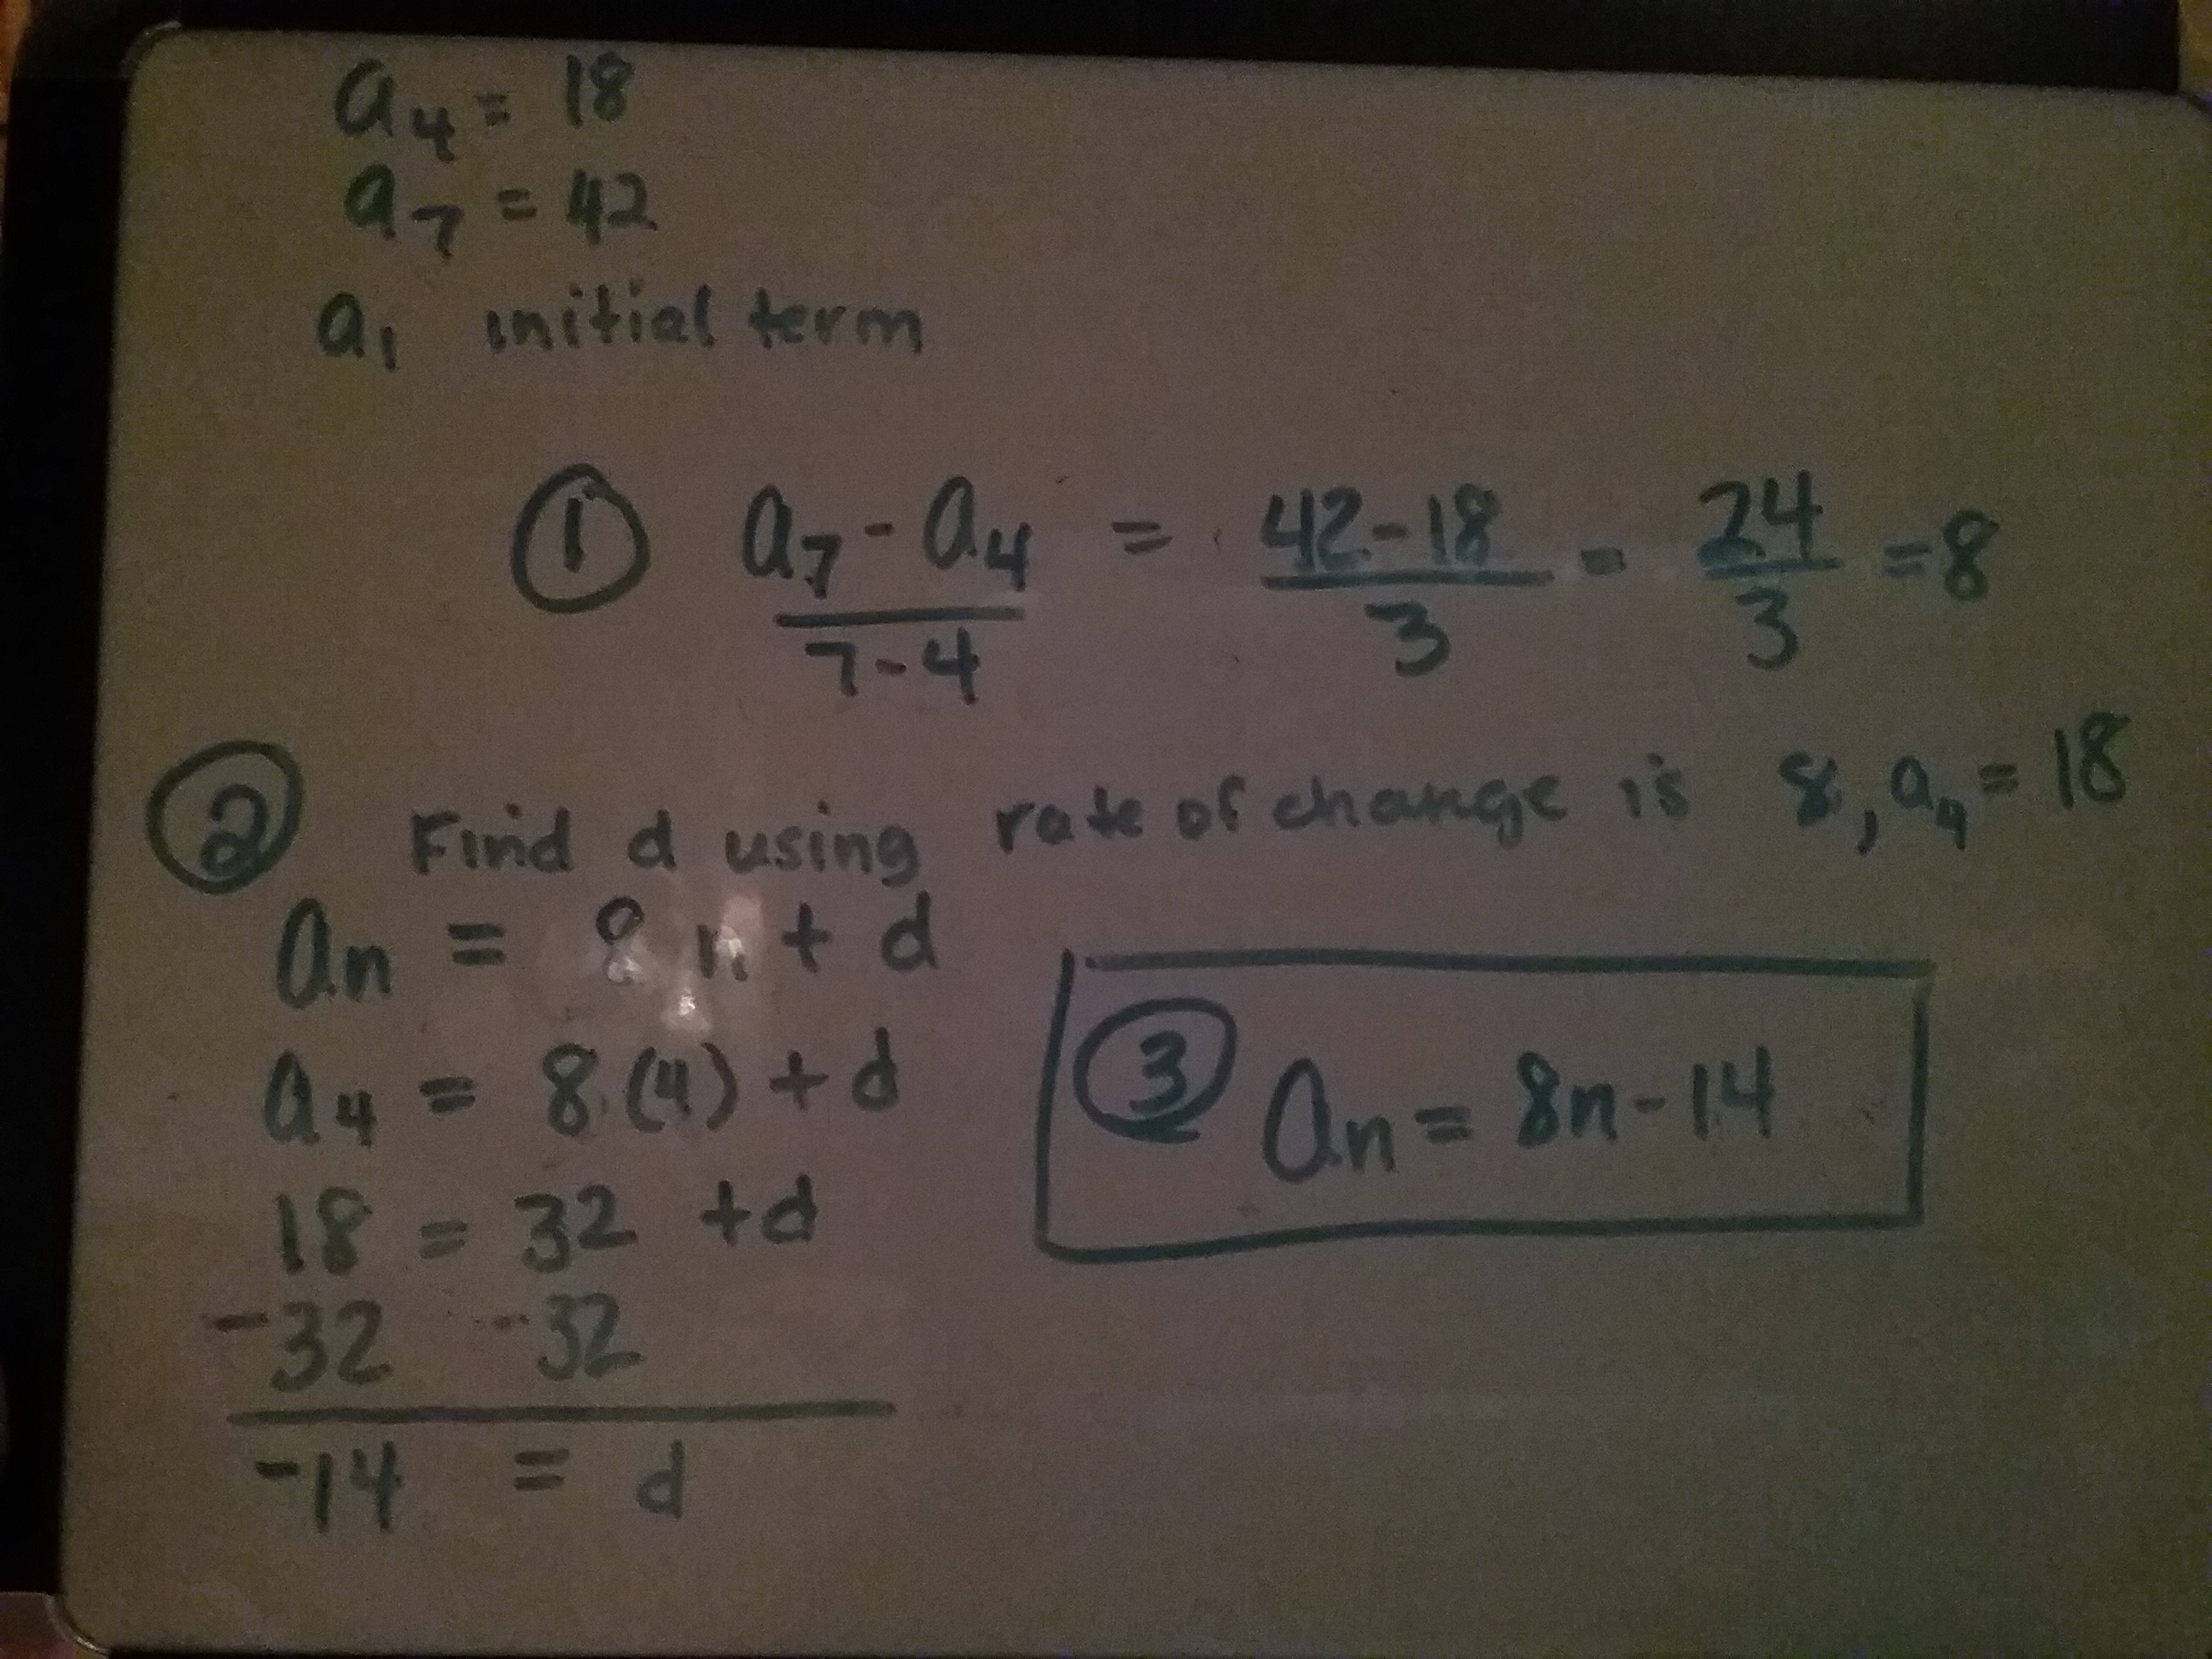 a₄ = 18
a₇ = 42
a₁ initial term
① (a₇ - a₄)/(7-4) = (42-18)/3 = 24/3 = 8
② Find d using rate of change is 8, a₄ = 18
aₙ = 8n + d
a₄ = 8(4) + d
18 = 32 + d
-32 -32
-14 = d
③ aₙ = 8n - 14